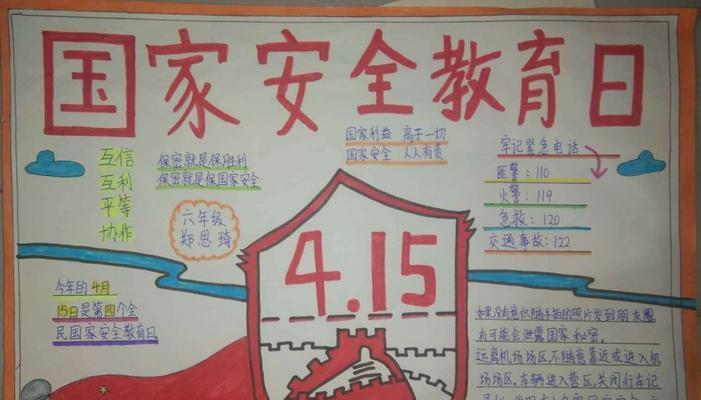 国家安全教育日
互信
互利
平等
协作
保密就是保胜利
保密就是保国家安全
国家利益 高于一切
国家安全 人人有责
牢记紧急电话
匪警:110
火警:119
急救:120
交通事故:122
六年级
郑思琦
4.15
今年的4月
15日是第四个全
民国家安全教育日
如果没有意识随手拍的照片发到朋友圈
有可能会泄露国家秘密。
远离机场场区,不随意靠近或进入机
场场区。车辆进入营区,关闭行车记